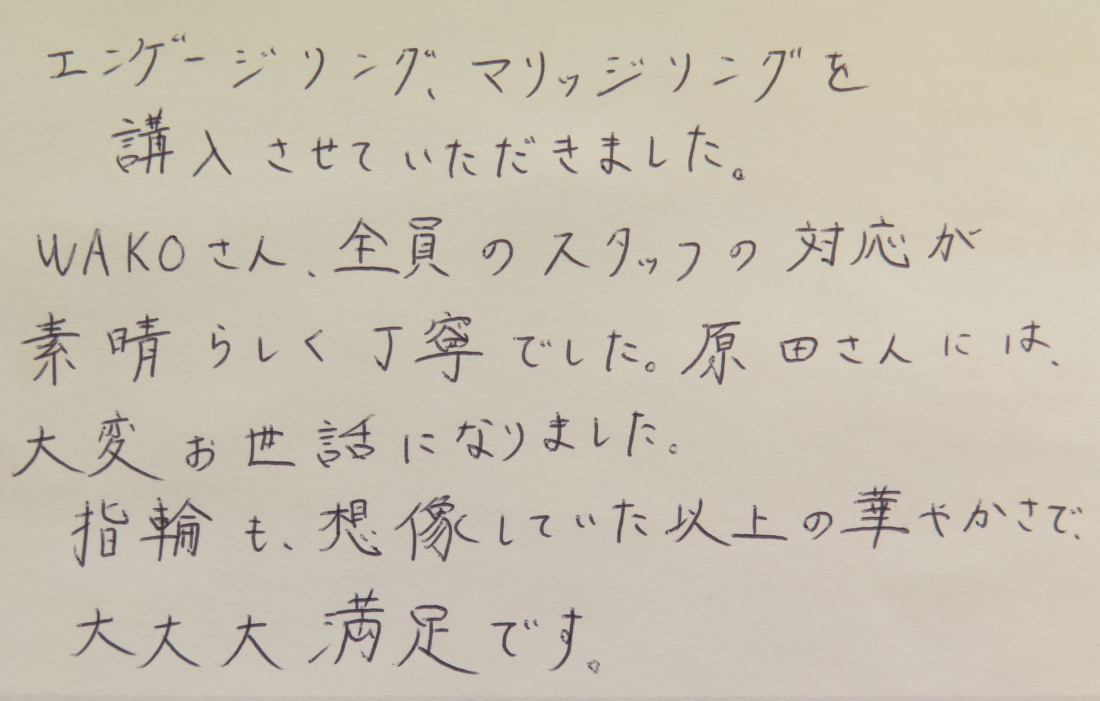 エンゲージリング、マリッジリングを
講入させていただきました。
WAKOさん、全員のスタッフの対応が
素晴らしく丁寧でした。原田さんには、
大変お世話になりました。
指輪も、想像していた以上の華やかさで、
大大大満足です。